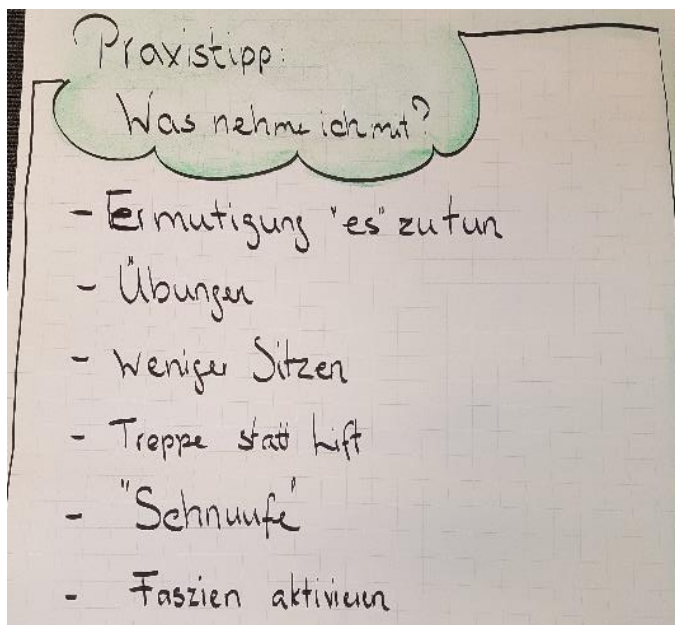 Praxistipp:
Was nehme ich mit?
- Ermutigung "es" zu tun
- Übungen
- Weniger Sitzen
- Treppe statt Lift
- "Schnuufe"
- Faszien aktivieren